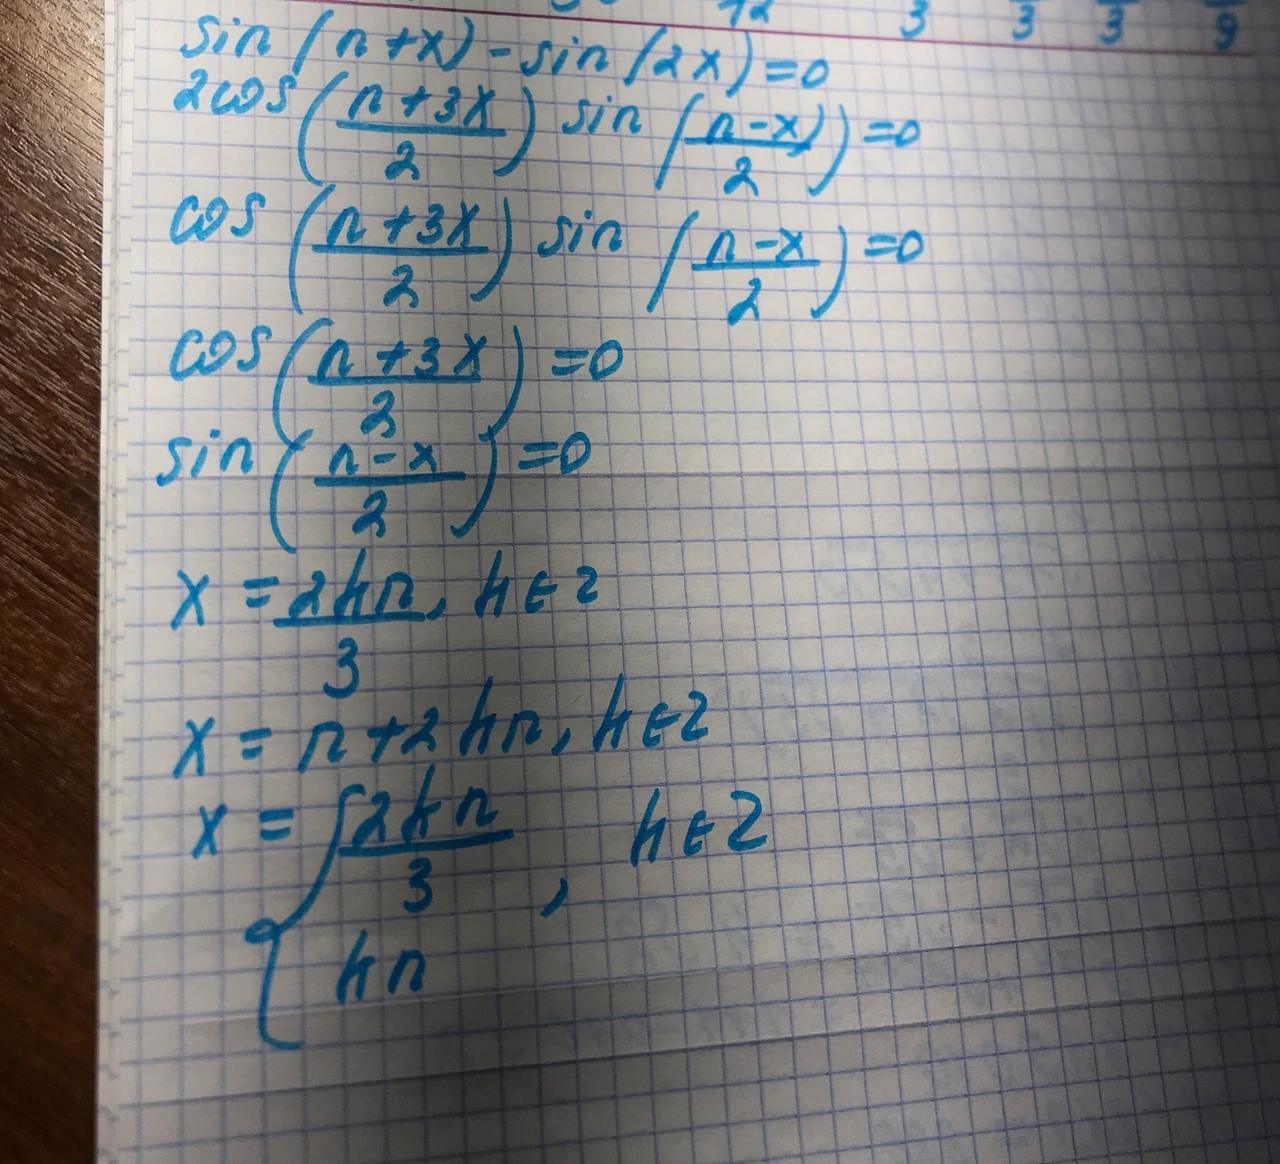 12 3 3 3 9
sin(π+x)-sin(2x)=0
2cos((π+3x)/2) sin((π-x)/2)=0
cos((π+3x)/2) sin((π-x)/2)=0
cos((π+3x)/2)=0
sin((π-x)/2)=0
x=2kπ/3, k∈Z
x=π+2kπ, k∈Z
x={2kπ/3, k∈Z
kπ